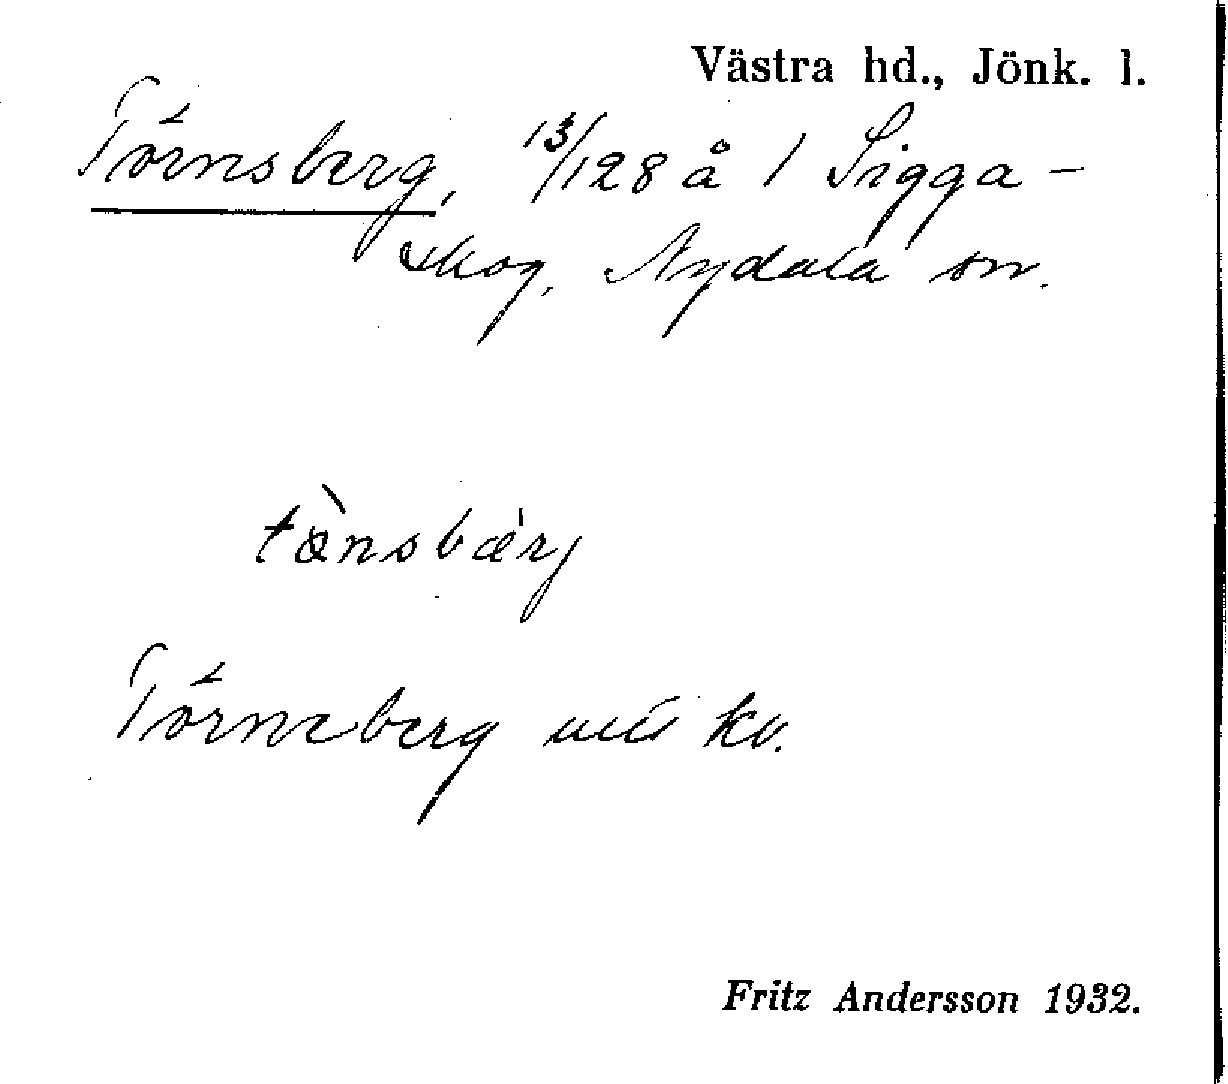 Västra hd., Jönk. l.
Törnsberg, 13/128 å 1 Sigga-
skog, Nydala sn.
tǿnsbærj
Törneberg kv.
Fritz Andersson 1932.